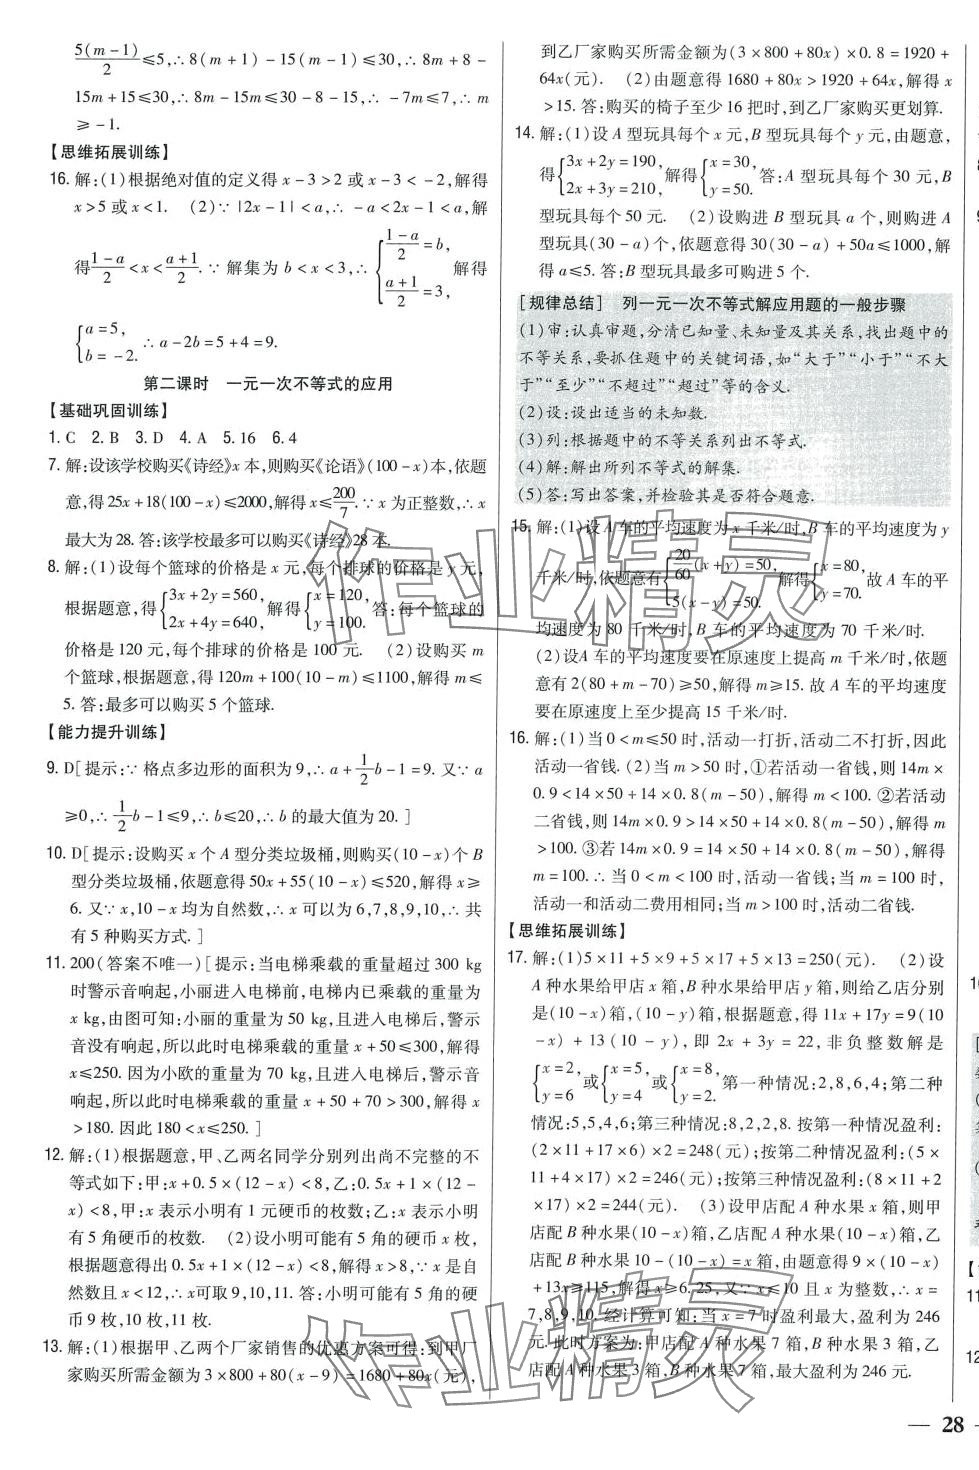 5(m-1)/2≤5,∴8(m+1)-15(m-1)≤30,∴8m+8-
15m+15≤30,∴8m-15m≤30-8-15,∴-7m≤7,∴m
≥-1.
【思维拓展训练】
16. 解:(1)根据绝对值的定义得 x-3>2 或 x-3<-2,解得
x>5 或 x<1. (2)∵|2x-1|<a,∴-a<2x-1<a,解
得(1-a)/2<x<(a+1)/2.∵解集为 b<x<3,∴{(1-a)/2=b, (a+1)/2=3, 解得
{a=5, b=-2. ∴a-2b=5+4=9.
第二课时 一元一次不等式的应用
【基础巩固训练】
1. C 2. B 3. D 4. A 5. 16 6. 4
7. 解:设该学校购买《诗经》x 本,则购买《论语》(100-x)本,依题
意,得 25x+18(100-x)≤2000,解得 x≤200/7.∵x 为正整数,∴x
最大为 28. 答:该学校最多可以购买《诗经》28 本.
8. 解:(1)设每个篮球的价格是 x 元,每个排球的价格是 y 元,
根据题意,得{3x+2y=560, 2x+4y=640, 解得{x=120, y=100. 答:每个篮球的
价格是 120 元,每个排球的价格是 100 元. (2)设购买 m
个篮球,根据题意,得 120m+100(10-m)≤1100,解得 m≤
5. 答:最多可以购买 5 个篮球.
【能力提升训练】
9. D[提示:∵格点多边形的面积为 9,∴a+1/2b-1=9. 又∵a
≥0,∴1/2b-1≤9,∴b≤20,∴b 的最大值为 20. ]
10. D[提示:设购买 x 个 A 型分类垃圾桶,则购买(10-x)个 B
型分类垃圾桶,依题意得 50x+55(10-x)≤520,解得 x≥
6. 又∵x,10-x 均为自然数,∴x 可以为 6,7,8,9,10,∴共
有 5 种购买方式. ]
11. 200(答案不唯一)[提示:当电梯乘载的重量超过 300 kg
时警示音响起,小丽进入电梯前,电梯内已乘载的重量为
x kg,由图可知:小丽的重量为 50 kg,且进入电梯后,警示
音没有响起,所以此时电梯乘载的重量 x+50≤300,解得
x≤250. 因为小欧的重量为 70 kg,且进入电梯后,警示音
响起,所以此时电梯乘载的重量 x+50+70>300,解得 x
>180. 因此 180<x≤250. ]
12. 解:(1)根据题意,甲、乙两名同学分别列出尚不完整的不
等式如下:甲:x+0.5×(12-x)<8,乙:0.5x+1×(12-
x)<8,甲:x 表示小明有 1 元硬币的枚数;乙:x 表示小明
有 5 角硬币的枚数. (2)设小明可能有 5 角的硬币 x 枚,
根据题意得出 0.5x+1×(12-x)<8,解得 x>8,∵x 是自
然数且 x<12,∴x 可取 9,10,11. 答:小明可能有 5 角的硬
币 9 枚,10 枚,11 枚.
13. 解:(1)根据甲、乙两个厂家销售的优惠方案可得:到甲厂
家购买所需金额为 3×800+80(x-9)=1680+80x(元),
到乙厂家购买所需金额为(3×800+80x)×0.8=1920+
64x(元). (2)由题意得 1680+80x>1920+64x,解得 x
>15. 答:购买的椅子至少 16 把时,到乙厂家购买更划算.
14. 解:(1)设 A 型玩具每个 x 元,B 型玩具每个 y 元,由题意,
得{3x+2y=190, 2x+3y=210, 解得{x=30, y=50. 答:A 型玩具每个 30 元,B
型玩具每个 50 元. (2)设购进 B 型玩具 a 个,则购进 A
型玩具(30-a)个,依题意得 30(30-a)+50a≤1000,解
得 a≤5. 答:B 型玩具最多可购进 5 个.
[规律总结] 列一元一次不等式解应用题的一般步骤
(1)审:认真审题,分清已知量、未知量及其关系,找出题中的
不等关系,要抓住题中的关键词语,如“大于”“小于”“不大
于”“至少”“不超过”“超过”等的含义.
(2)设:设出适当的未知数.
(3)列:根据题中的不等关系列出不等式.
(4)解:解出所列不等式的解集.
(5)答:写出答案,并检验其是否符合题意.
15. 解:(1)设 A 车的平均速度为 x 千米/时,B 车的平均速度为 y
千米/时,依题意有{20/60(x+y)=50, 5(x-y)=50. 解得{x=80, y=70. 故 A 车的平
均速度为 80 千米/时,B 车的平均速度为 70 千米/时.
(2)设 A 车的平均速度要在原速度上提高 m 千米/时,依题
意有 2(80+m-70)≥50,解得 m≥15. 故 A 车的平均速度
要在原速度上至少提高 15 千米/时.
16. 解:(1)当 0<m≤50 时,活动一打折,活动二不打折,因此
活动一省钱. (2)当 m>50 时,①若活动一省钱,则 14m×
0.9<14×50+14×0.8(m-50),解得 m<100. ②若活动
二省钱,则 14m×0.9>14×50+14×0.8(m-50),解得 m
>100. ③若 14m×0.9=14×50+14×0.8(m-50),解得
m=100. ∴当 0<m<100 时,活动一省钱;当 m=100 时,
活动一和活动二费用相同;当 m>100 时,活动二省钱.
【思维拓展训练】
17. 解:(1)5×11+5×9+5×17+5×13=250(元). (2)设
A 种水果给甲店 x 箱,B 种水果给甲店 y 箱,则给乙店分别
是(10-x)箱,(10-y)箱,根据题意,得 11x+17y=9(10
-x)+13(10-y),即 2x+3y=22,非负整数解是
{x=2, y=6 或{x=5, y=4 或{x=8, y=2. 第一种情况:2,8,6,4;第二种
情况:5,5,4,6;第三种情况:8,2,2,8. 按第一种情况盈利:
(2×11+17×6)×2=248(元);按第二种情况盈利:(5×
11+4×17)×2=246(元);按第三种情况盈利:(8×11+2
×17)×2=244(元). (3)设甲店配 A 种水果 x 箱,则甲
店配 B 种水果(10-x)箱,乙店配 A 种水果(10-x)箱,乙
店配 B 种水果 10-(10-x)=x 箱,由题意得 9×(10-x)
+13x≥115,解得 x≥6.25,又∵x≤10 且 x 为整数,∴x=
7,8,9,10. 经计算可知:当 x=7 时盈利最大,盈利为 246
元. 此时方案为:甲店配 A 种水果 7 箱,B 种水果 3 箱,乙
店配 A 种水果 3 箱,B 种水果 7 箱,最大盈利为 246 元.
— 28 —
作业精灵
作业精灵